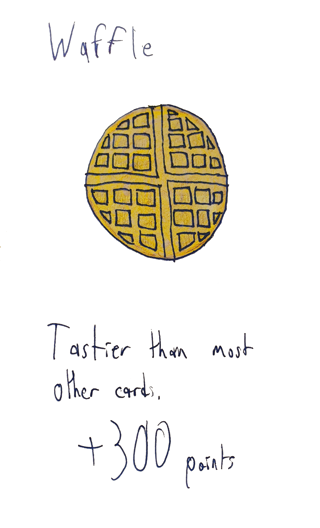 Waffle
Tastier than most
other cards.
+300 points